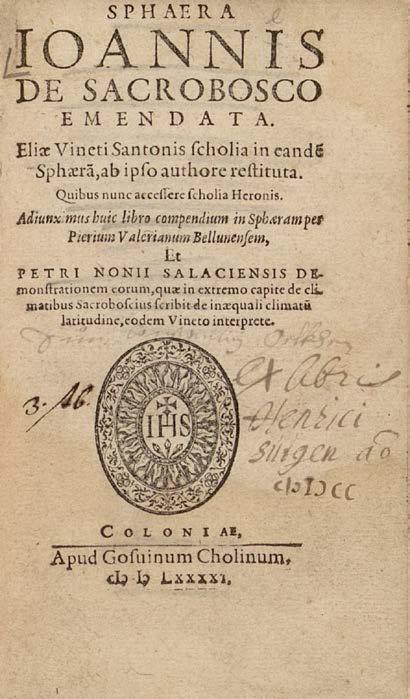 SPHAERA
IOANNIS
DE SACROBOSCO
EMENDATA.
Eliæ Vineti Santonis ſcholia in eandē
Sphærā, ab ipſo authore reſtituta.
Quibus nunc acceſſere ſcholia Heronis.
Adiunximus huic libro compendium in Sphæram per
Pierium Valerianum Bellunenſem,
Et
PETRI NONII SALACIENSIS DE-
monſtrationem eorum, quæ in extremo capite de cli-
matibus Sacroboſcius ſcribit de inæquali climatū
latitudine, eodem Vineto interprete.
ex libris
3. 16.
IHS
Henrici
Surgen aō
cIↃIↃcc
COLONIAE,
Apud Goſuinum Cholinum,
cIↃ IↃ LXXXXI.